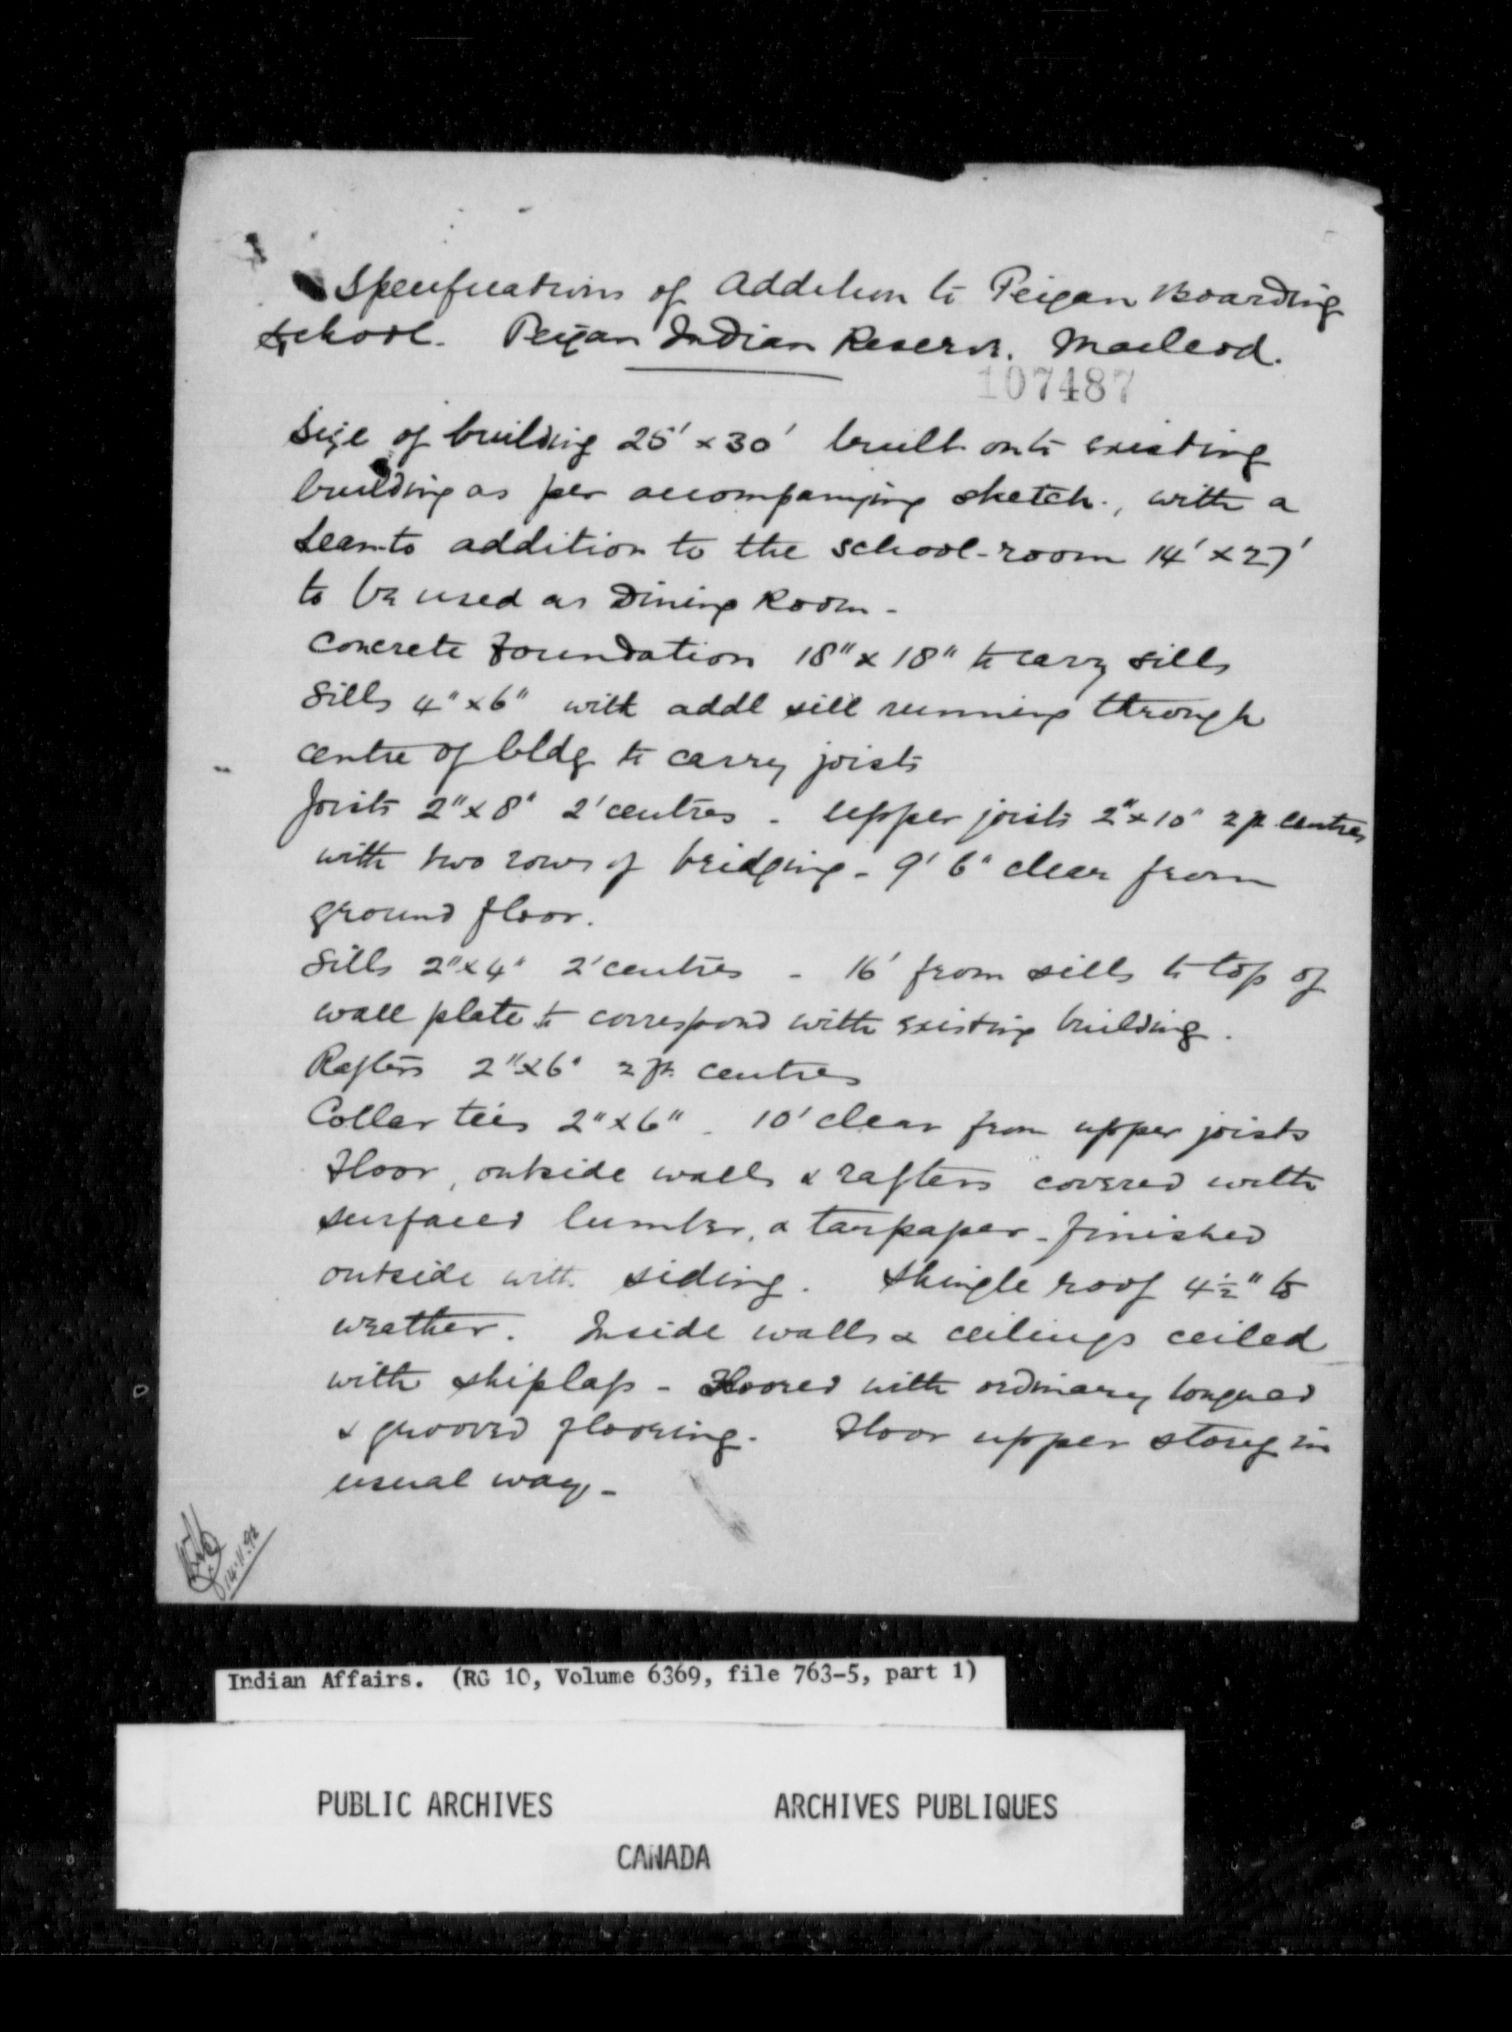 Specifications of Addition to Peigan Boarding
School. Peigan Indian Reserve. Macleod.
107487
Size of building 25' x 30' built onto existing
building as per accompanying sketch, with a
leanto addition to the school-room 14' x 27'
to be used as Dining Room -
Concrete foundation 18" x 18" to carry sills
Sills 4" x 6" with addl sill running through
centre of bldg to carry joists
Joists 2" x 8" 2' centres - Upper joists 2" x 10" 2 ft centres
with two rows of bridging - 9' 6" clear from
ground floor.
Sills 2" x 4" 2' centres - 16' from sills to top of
wall plate to correspond with existing building.
Rafters 2" x 6" 2 ft. centres
Collar ties 2" x 6" - 10' clear from upper joists
Floor, outside walls & rafters covered with
surfaced lumber, & tarpaper - finished
outside with siding. Shingle roof 4½" to
weather. Inside walls & ceilings ceiled
with shiplap - Floored with ordinary tongued
& grooved flooring. Floor upper story in
usual way -
Indian Affairs. (RG 10, Volume 6369, file 763-5, part 1)
PUBLIC ARCHIVES ARCHIVES PUBLIQUES
CANADA